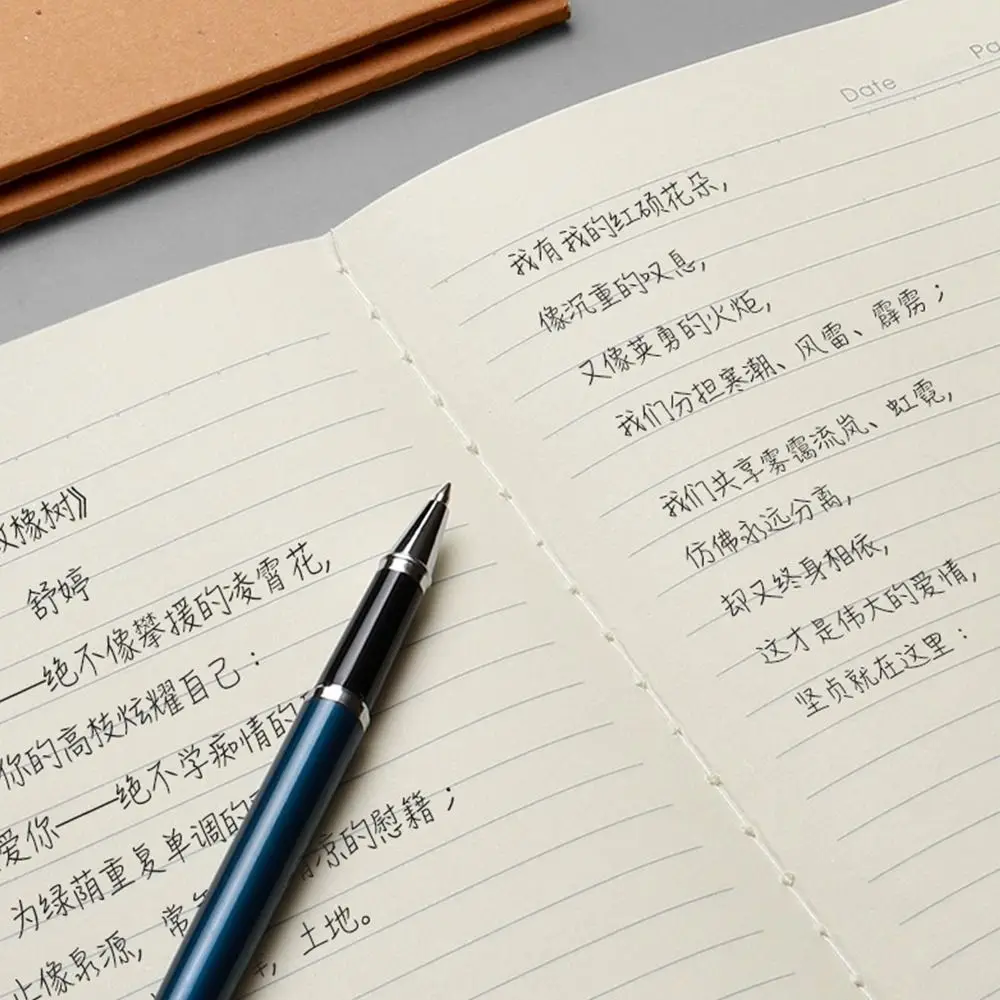 Date
橡树》
舒婷
——绝不像攀援的凌霄花,
你的高枝炫耀自己:
爱你——绝不学痴情的
为绿荫重复单调的
像泉源, 常 凉的慰籍;
, 土地。
我有我的红硕花朵,
像沉重的叹息,
又像英勇的火炬,
我们分担寒潮、风雷、霹雳;
我们共享雾霭流岚、虹霓,
仿佛永远分离,
却又终身相依,
这才是伟大的爱情,
坚贞就在这里: